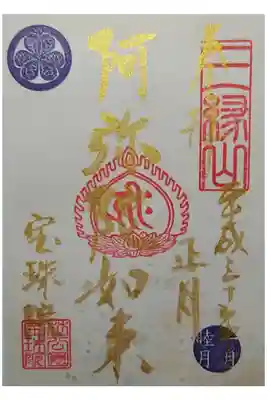 奉拝
三縁山
平成三十一年
正月
睦月
阿弥陀如来
宝珠院